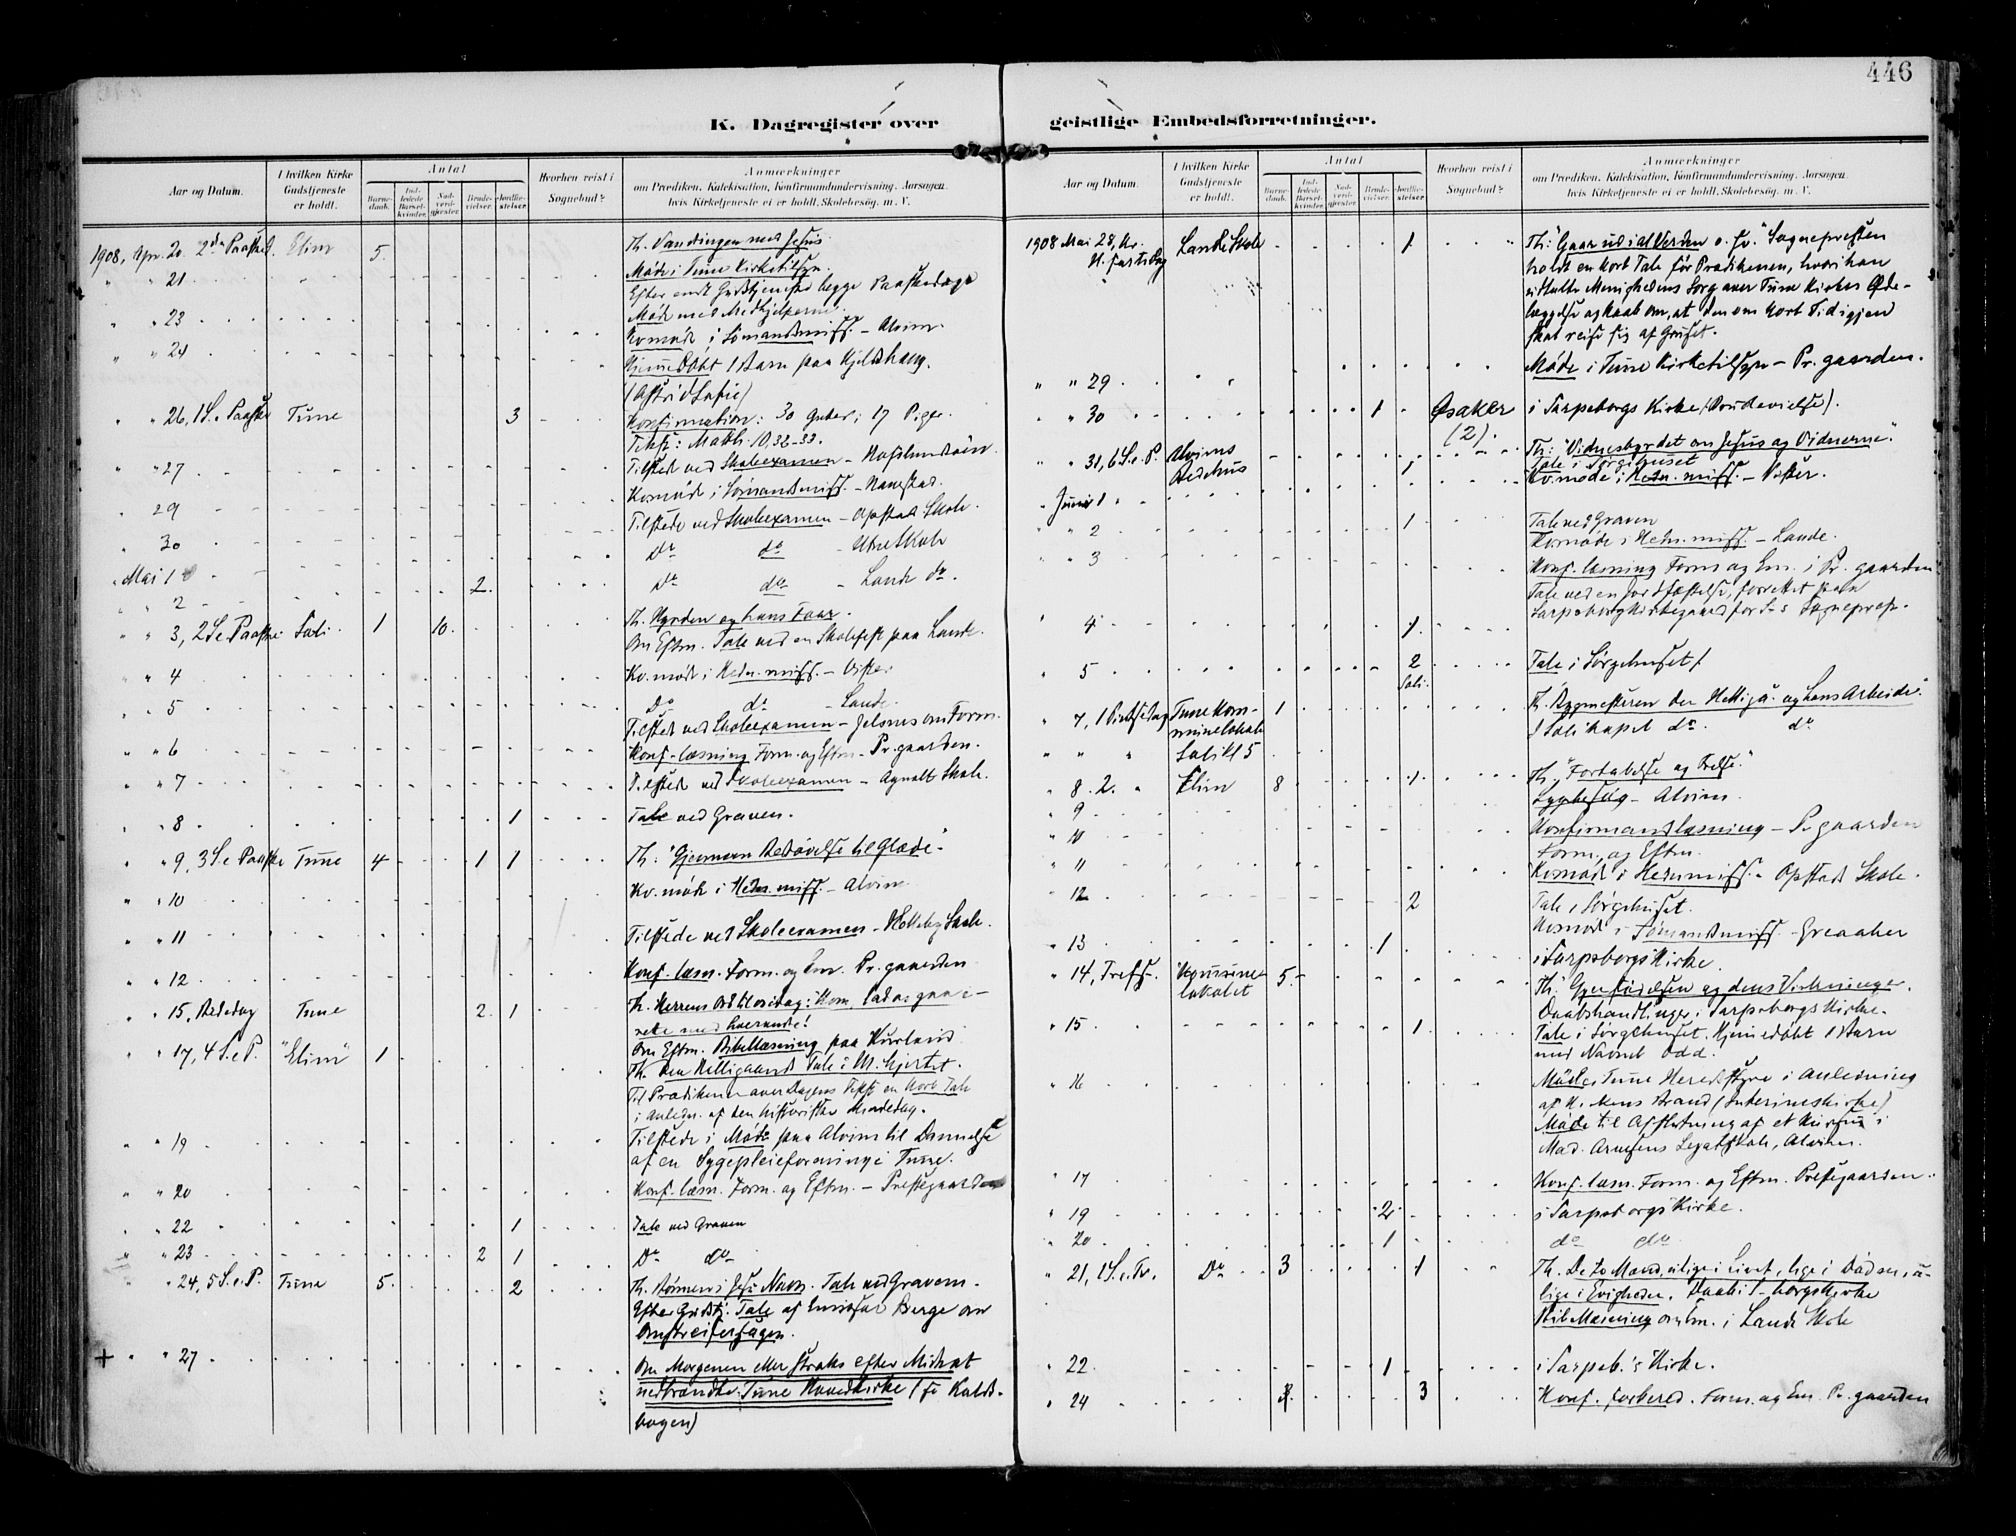 446
K. Dagregister over
geistlige Embedsforretninger.
Aar og Datum.
I hvilken Kirke Gudstjeneste er holdt.
Antal
Barnedaab.
Indledede Barselkvinder.
Nadverdgjæster.
Brudevielser.
Jordfæstelser.
Hvorhen reist i Sognebud?
Anmærkninger
om Prædiken, Katekisation, Konfirmandundervisning, Aarsagen,
hvis Kirketjeneste ei er holdt, Skolebesøg, m. V.
1908, Apr. 20. 2den Paasked. Elim 5 Th. Vandringen med Jesus
" " 21 Møde i Tune Kirketilsyn.
Efter endt Gudstjeneste begge Paaskedage
Møde med Medhjelperne.
" " 23 Kv.møde i Sømandsmiss. – Alvim.
" " 24 Hjemmedøbt 1 Barn paa Hjelshaug.
(Astrid Sofie)
" " 26, 1 S. e. Paaske Tune 3 Konfirmation: 30 Gutter; 17 Piger.
Text: Matth. 10, 32-33.
" " 27 Tilstede ved Skoleexamen – Hafslundsøen.
Kv.møde i Sømandsmiss. – Navestad.
" 29 Tilstede ved Skoleexamen – Opstad Skole.
" 30 Do do – Utne Skole
" Mai 1 2 Do do – Lande do.
" " 2
" " 3, 2 S. e. Paaske Soli 1 10 Th. Hyrden og hans Faar.
Om Eftm. Tale ved en Skolefest paa Lande.
" " 4 Kv.møde i Hedn.miss. – Vister
" " 5 Do do – Lande.
Tilstede ved Skoleexamen – Jelsnes om Form.
" " 6 Konf.-læsning Form. og Eftm. – Pr.gaarden.
" " 7 Tilstede ved Skoleexamen – Agnalt Skole.
" " 8 1 Tale ved Graven.
" " 9, 3 S. e. Paaske Tune 4 1 1 Th: "Gjennem Bedrøvelse til Glæde".
" " 10 Kv.møde i Hedn.miss. – Alvim
" " 11 Tilstede ved Skoleexamen – Holleby Skole.
" " 12 Konf.læsn. Form. og Em. Pr.gaarden
" " 15, Bededag Tune 2 1 Th. Herrens Ord til os idag: Kom, lad os gaa i
rette med hverandre!
Om Eftm. Bibellæsning paa Kurland
" " 17, 4 S. e. P. "Elim" 1 Th. Den Helligaands Tale i M. hjertet.
Til Prædikenen over Dagens Text en kort Tale
i Anledn. af den historiske Mindedag.
" " 19 Tilstede i Møde paa Alvim til Dannelse
af en Sygepleieforening i Tune.
" " 20 Konf.læsn. Form. og Eftm. – Prestegaarden
" " 22 1 Tale ved Graven
" " 23 2 1 Do do
" " 24, 5 S. e. P. Tune 5 2 Th. Bønnen i Jesu Navn. Tale ved Graven.
Efter Gudstj. Tale af Emissær Berge om
Omstreifersagen.
+ " " 27 Om Morgenen eller straks efter Midnat
nedbrændte Tune Hovedkirke (se Kalds-
bogen)
Aar og Datum.
I hvilken Kirke Gudstjeneste er holdt.
Antal
Barnedaab.
Indledede Barselkvinder.
Nadverdgjæster.
Brudevielser.
Jordfæstelser.
Hvorhen reist i Sognebud?
Anmærkninger
om Prædiken, Katekisation, Konfirmandundervisning, Aarsagen,
hvis Kirketjeneste ei er holdt, Skolebesøg, m. V.
1908 Mai 28, Kr. H.fartsdag Lande Skole 1 Th: "Gaar ud i al Verden o. s. v." Sognepresten
holdt en kort Tale før Prædikenen, hvori han
udtalte Menighedens Sorg over Tune Kirkes Øde-
læggelse og Haab om, at den om kort Tid igjen
skal reise sig af Gruset.
" " 29 Møde i Tune Kirketilsyn – Pr.gaarden.
" 30 1 Øsaker (2). i Sarpsborgs Kirke (Brudevielse).
" 31, 6 S. e. P. Alvims Bedehus 1 Th: "Vidnesbyrdet om Jesus og Vidnerne".
Tale i Sørgehuset
" Juni 1 Kv.møde i Hedn.miss. – Vister.
" 2 1 Tale ved Graven
Kv.møde i Hedn.miss. – Lande.
" 3 Konf.læsning Form og Em. i Pr.gaarden
" 4 1 Tale ved en Jordfæstelse, forrettet paa
Sarpsborg Kirkegaard for S-s Sogneprest.
" 5 2 Soli. Tale i Sørgehuset 1
" 7, 1 Pintsedag Tune Kommunelokale 1 Th. Bygmesteren den Helligå. og hans Arbeide".
" " " Soli kl 5 I Soli Kapel do do
" 8. 2. " Elim 8 1 Th. "Fortabelse og Frelse."
" 9 Sygebesøg – Alvim.
" 10 Konfirmantlæsning – Pr.gaarden
Form. og Eftm.
" 11 Kv.møde i Hedn.miss. – Opstad Skole.
" 12 2 Tale i Sørgehuset.
Kv.møde i Sømandsmiss. – Greaaker
" 13 1 i Sarpsborgs Kirke.
" 14, Trefs. Kommunelokalet 5 Th. Gjenfødelsen og dens Virkninger.
Daabshandlinger i Sarpsborgs Kirke.
" 15 1 Tale i Sørgehuset. Hjemmedøbt 1 Barn
med Navnet Odd.
" 16 Møde i Tune Herredstyre i Anledning
af K. Aens Brand (Interimskirke)
Møde til Afslutning af et Kursus i
Mad. Arnesens Legatskole, Alvim.
" 17 Konf.læsn. Form. og Eftm. Prestegaarden.
" 19 2 i Sarpsborgs Kirke.
" 20 1 do do
" 21, 1 S. e. Tr. Do 3 1 Th. De to Mænd, ulige i Livet, lige i Døden, u-
lige i Evigheden. Daab i S-borgs Kirke
Bibellæsning om Em. i Lande Skole
" 22 1 i Sarpsb.'s Kirke.
" 24 3 Konf. forbered. Form. og Em. Pr.gaarden